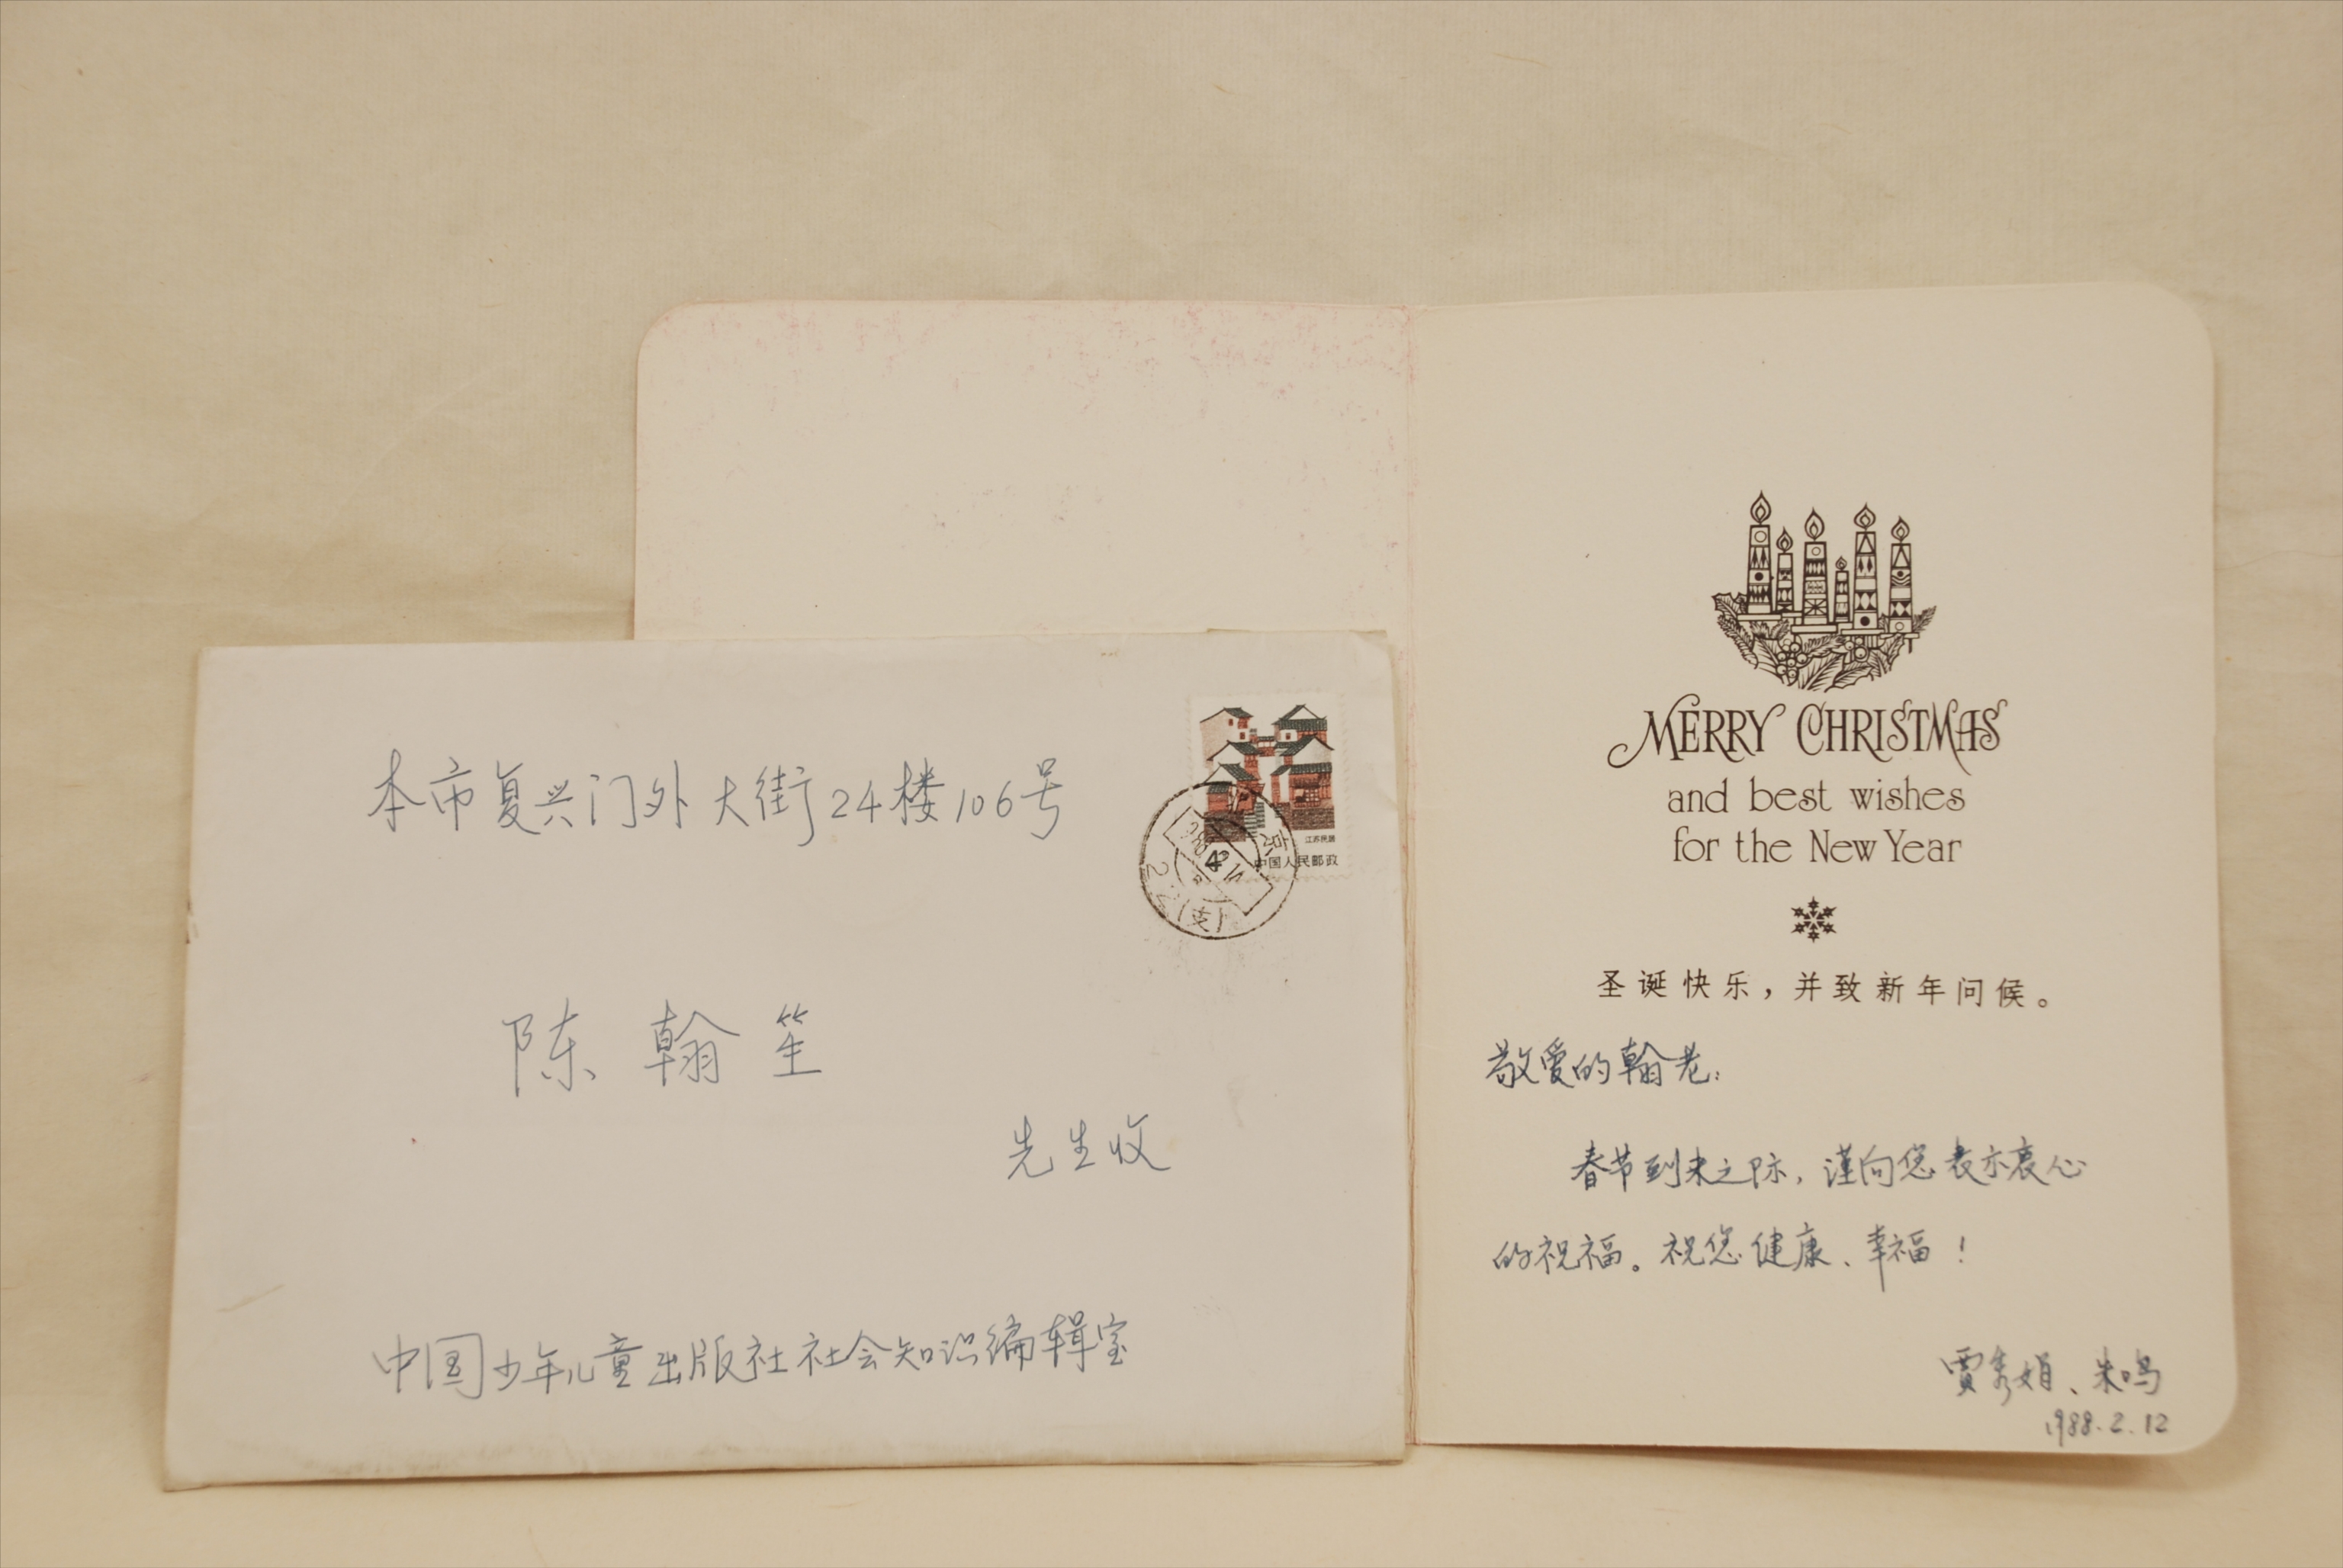 本市复兴门外大街24楼106号
陈翰笙
先生收
中国少年儿童出版社社会知识编辑室
江苏民居
中国人民邮政
4
(支)
MERRY CHRISTMAS
and best wishes
for the New Year
圣诞快乐，并致新年问候。
敬爱的翰老：
春节到来之际，谨向您表示衷心
的祝福。祝您健康、幸福！
贾秀娟、朱鸣
1988.2.12